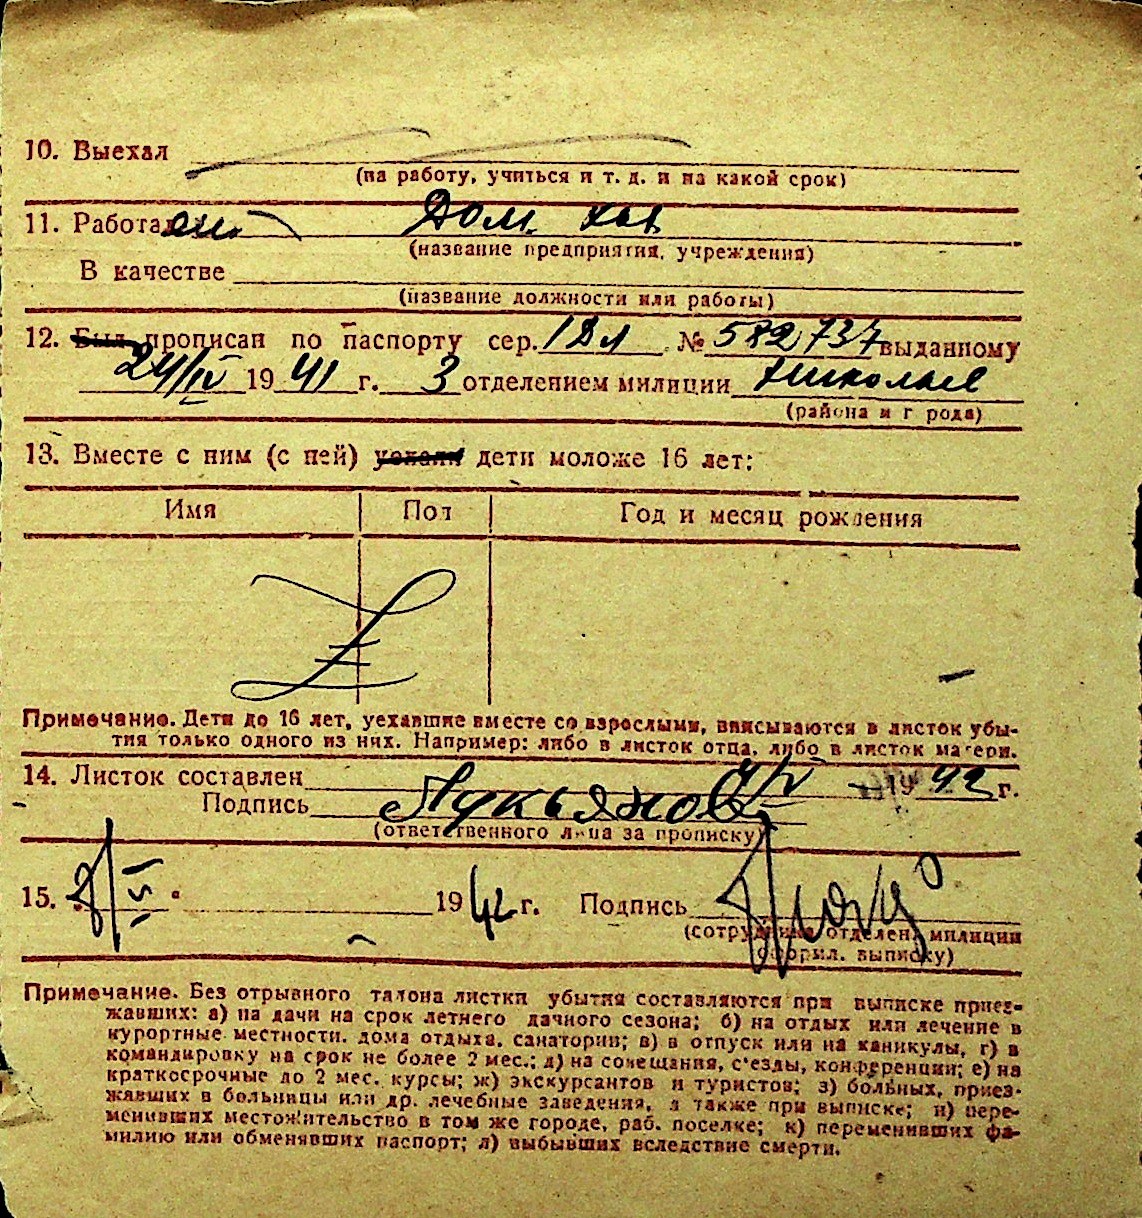 10. Выехал
(на работу, учиться и т. д. и на какой срок)
11. Работа Дом. хоз
(название предприятия, учреждения)
В качестве
(название должности или работы)
12. Был прописан по паспорту сер. № 582737 выданному
24/IV 1941 г. 3 отделением милиции Николаев
(района и города)
13. Вместе с ним (с ней) уехали дети моложе 16 лет:
Имя Пол Год и месяц рождения
Примечание. Дети до 16 лет, уехавшие вместе со взрослыми, вписываются в листок убы-
тия только одного из них. Например: либо в листок отца, либо в листок матери.
14. Листок составлен 1942 г.
Подпись Лукьянов
(ответственного лица за прописку)
15. 1942 г. Подпись
(сотрудника отделен. милиции
оформл. выписку)
Примечание. Без отрывного талона листки убытия составляются при выписке приез-
жавших: а) на дачи на срок летнего дачного сезона; б) на отдых или лечение в
курортные местности, дома отдыха, санатории; в) в отпуск или на каникулы, г) в
командировку на срок не более 2 мес.; д) на совещания, с'езды, конференции; е) на
краткосрочные до 2 мес. курсы; ж) экскурсантов и туристов; з) больных, приез-
жавших в больницы или др. лечебные заведения, а также при выписке; и) пере-
менивших местожительство в том же городе, раб. поселке; к) переменивших фа-
милию или обменявших паспорт; л) выбывших вследствие смерти.